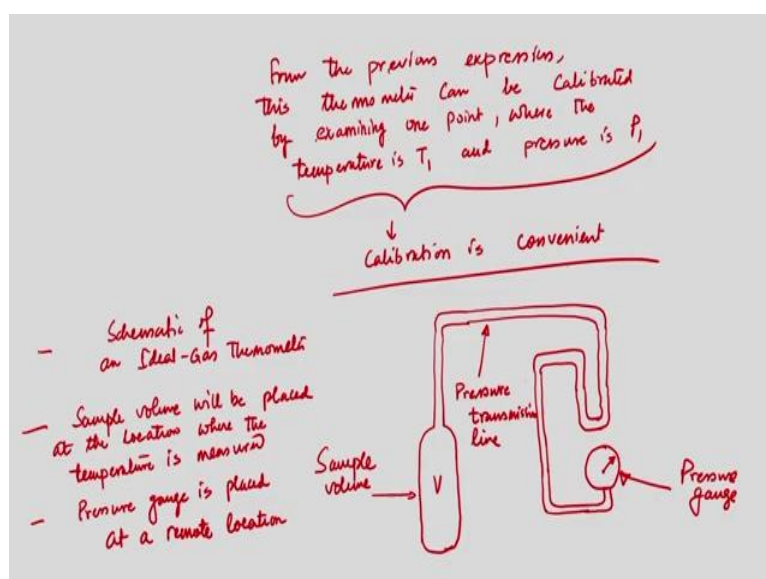 From the previous expression,
this thermometer can be calibrated
by examining one point, where the
temperature is T₁ and pressure is P₁
Calibration is convenient
- Schematic of
an Ideal-Gas Thermometer
- Sample volume will be placed
at the location where the
temperature is measured
- Pressure gauge is placed
at a remote location
Sample
volume
V
Pressure
transmission
line
Pressure
gauge